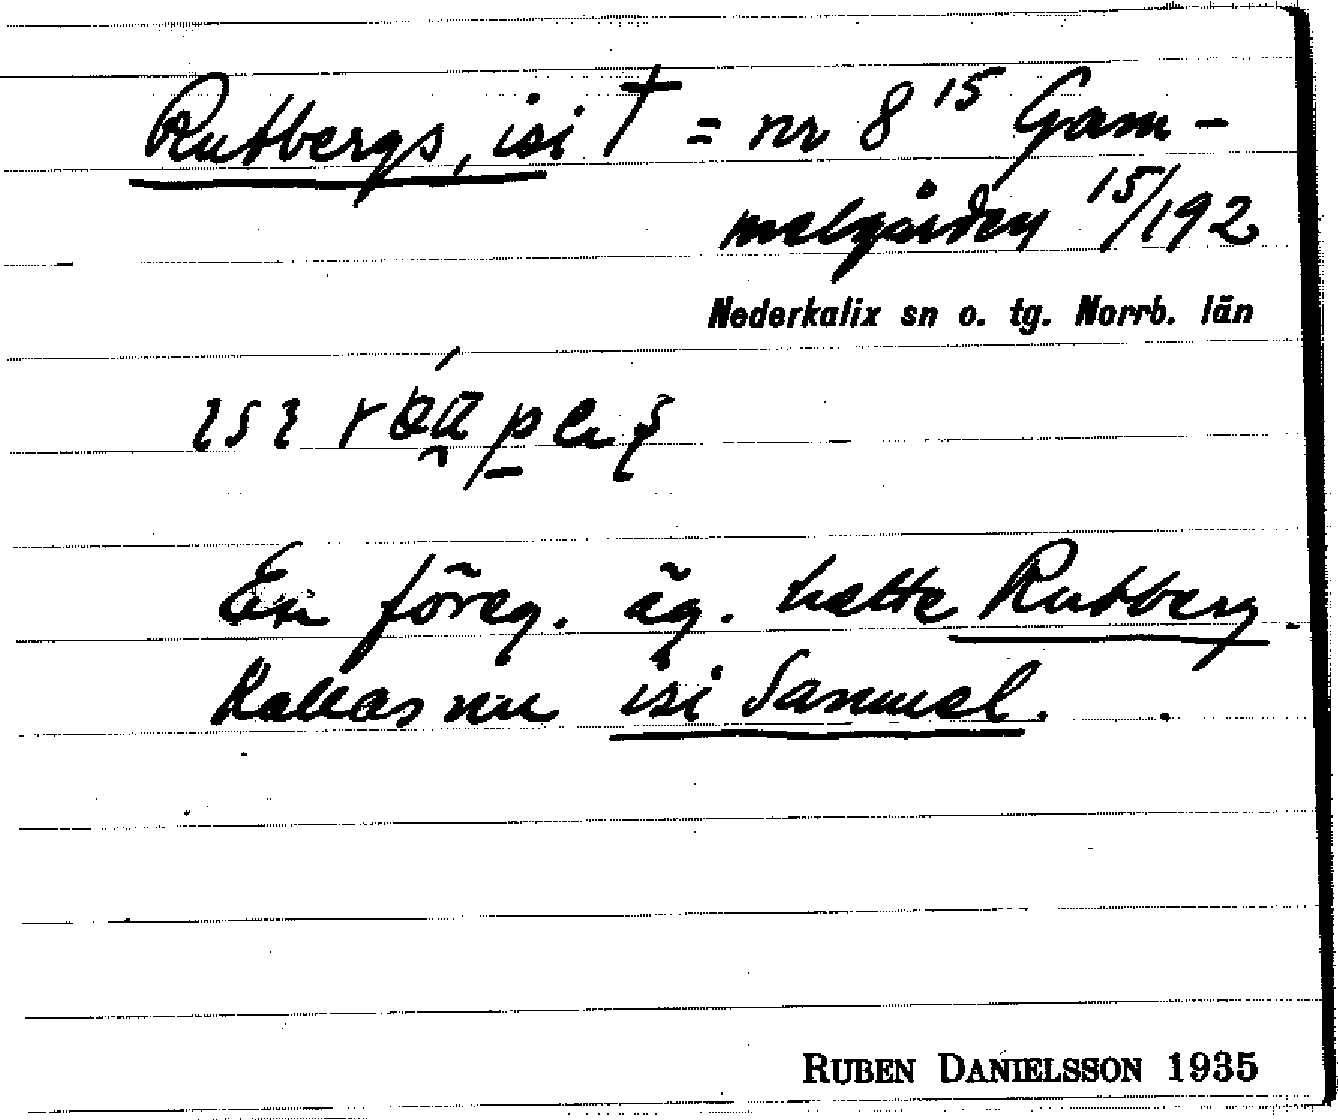 Rutbergs, isi † = nr 8 15 Gam-
melgården 15/192
Nederkalix sn o. tg. Norrb. län
ɪsɪ
En föreg. äg. hette Rutberg.
Kallas nu isi Samuel.
RUBEN DANIELSSON 1935